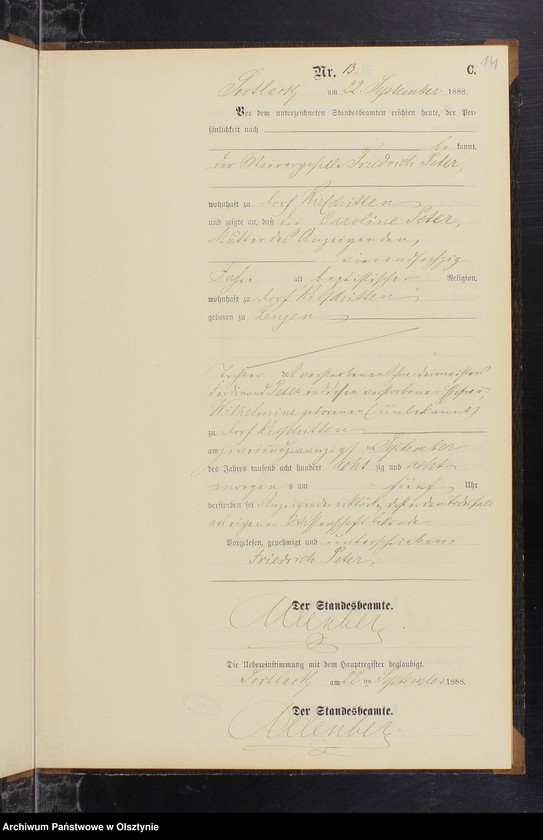 14
Nr. 13. C.
am 22. September 1888.
Vor dem unterzeichneten Standesbeamten erschien heute, der Per-
sönlichkeit nach
be kannt,
der Maurergeselle Friedrich Peter,
wohnhaft zu Dorf
und zeigte an, daß die Caroline Peter,
Mutter des Anzeigenden,
vierundsechzig
Jahre alt baptistischer Religion,
wohnhaft zu Dorf
geboren zu Lenzen
Tochter des verstorbenen Schneidermeisters
Ferdinand Peter und dessen verstorbener Ehefrau
Wilhelmine geborenen (unbekannt)
zu Dorf
am zweiundzwanzigsten September
des Jahres tausend acht hundert acht zig und acht
morgens um fünf Uhr
verstorben sei. Anzeigender erklärte, daß er den Todesfall
aus eigener Wissenschaft bekunde.
Vorgelesen, genehmigt und unterschrieben
Friedrich Peter.
Der Standesbeamte.
Die Uebereinstimmung mit dem Hauptregister beglaubigt.
am 22 ten September 1888.
Der Standesbeamte.
Archiwum Państwowe w Olsztynie